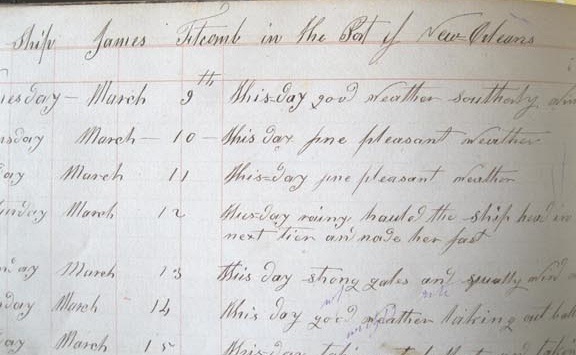 Ship James Titcomb in the Port of New Orleans
nesday — March 9th this day good weather southerly
rsday March — 10 — this day fine pleasant weather
day March 11 this day fine pleasant weather
March 12 this day rainy hauled the ship head in
next tier and made her fast
day March 13 this day strong gales and squally wind
day March 14 this day good weather taking out
day March 15 this day